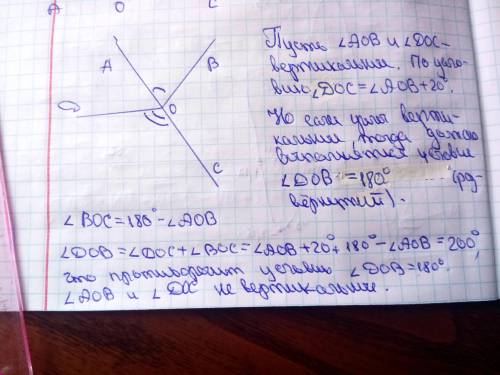 A O C
A
B
D
O
C
Пусть ∠AOB и ∠DOC-
вертикальные. По усло-
вию ∠DOC=∠AOB+20°.
Но если углы верти-
кальные, тогда должно
выполнятся условие
∠DOB =180° (ра-
звёрнутый).
∠BOC=180°-∠AOB
∠DOB=∠DOC+∠BOC=∠AOB+20°+180°-∠AOB=200°,
что противоречит условию ∠DOB=180°.
∠AOB и ∠DOC не вертикальные.